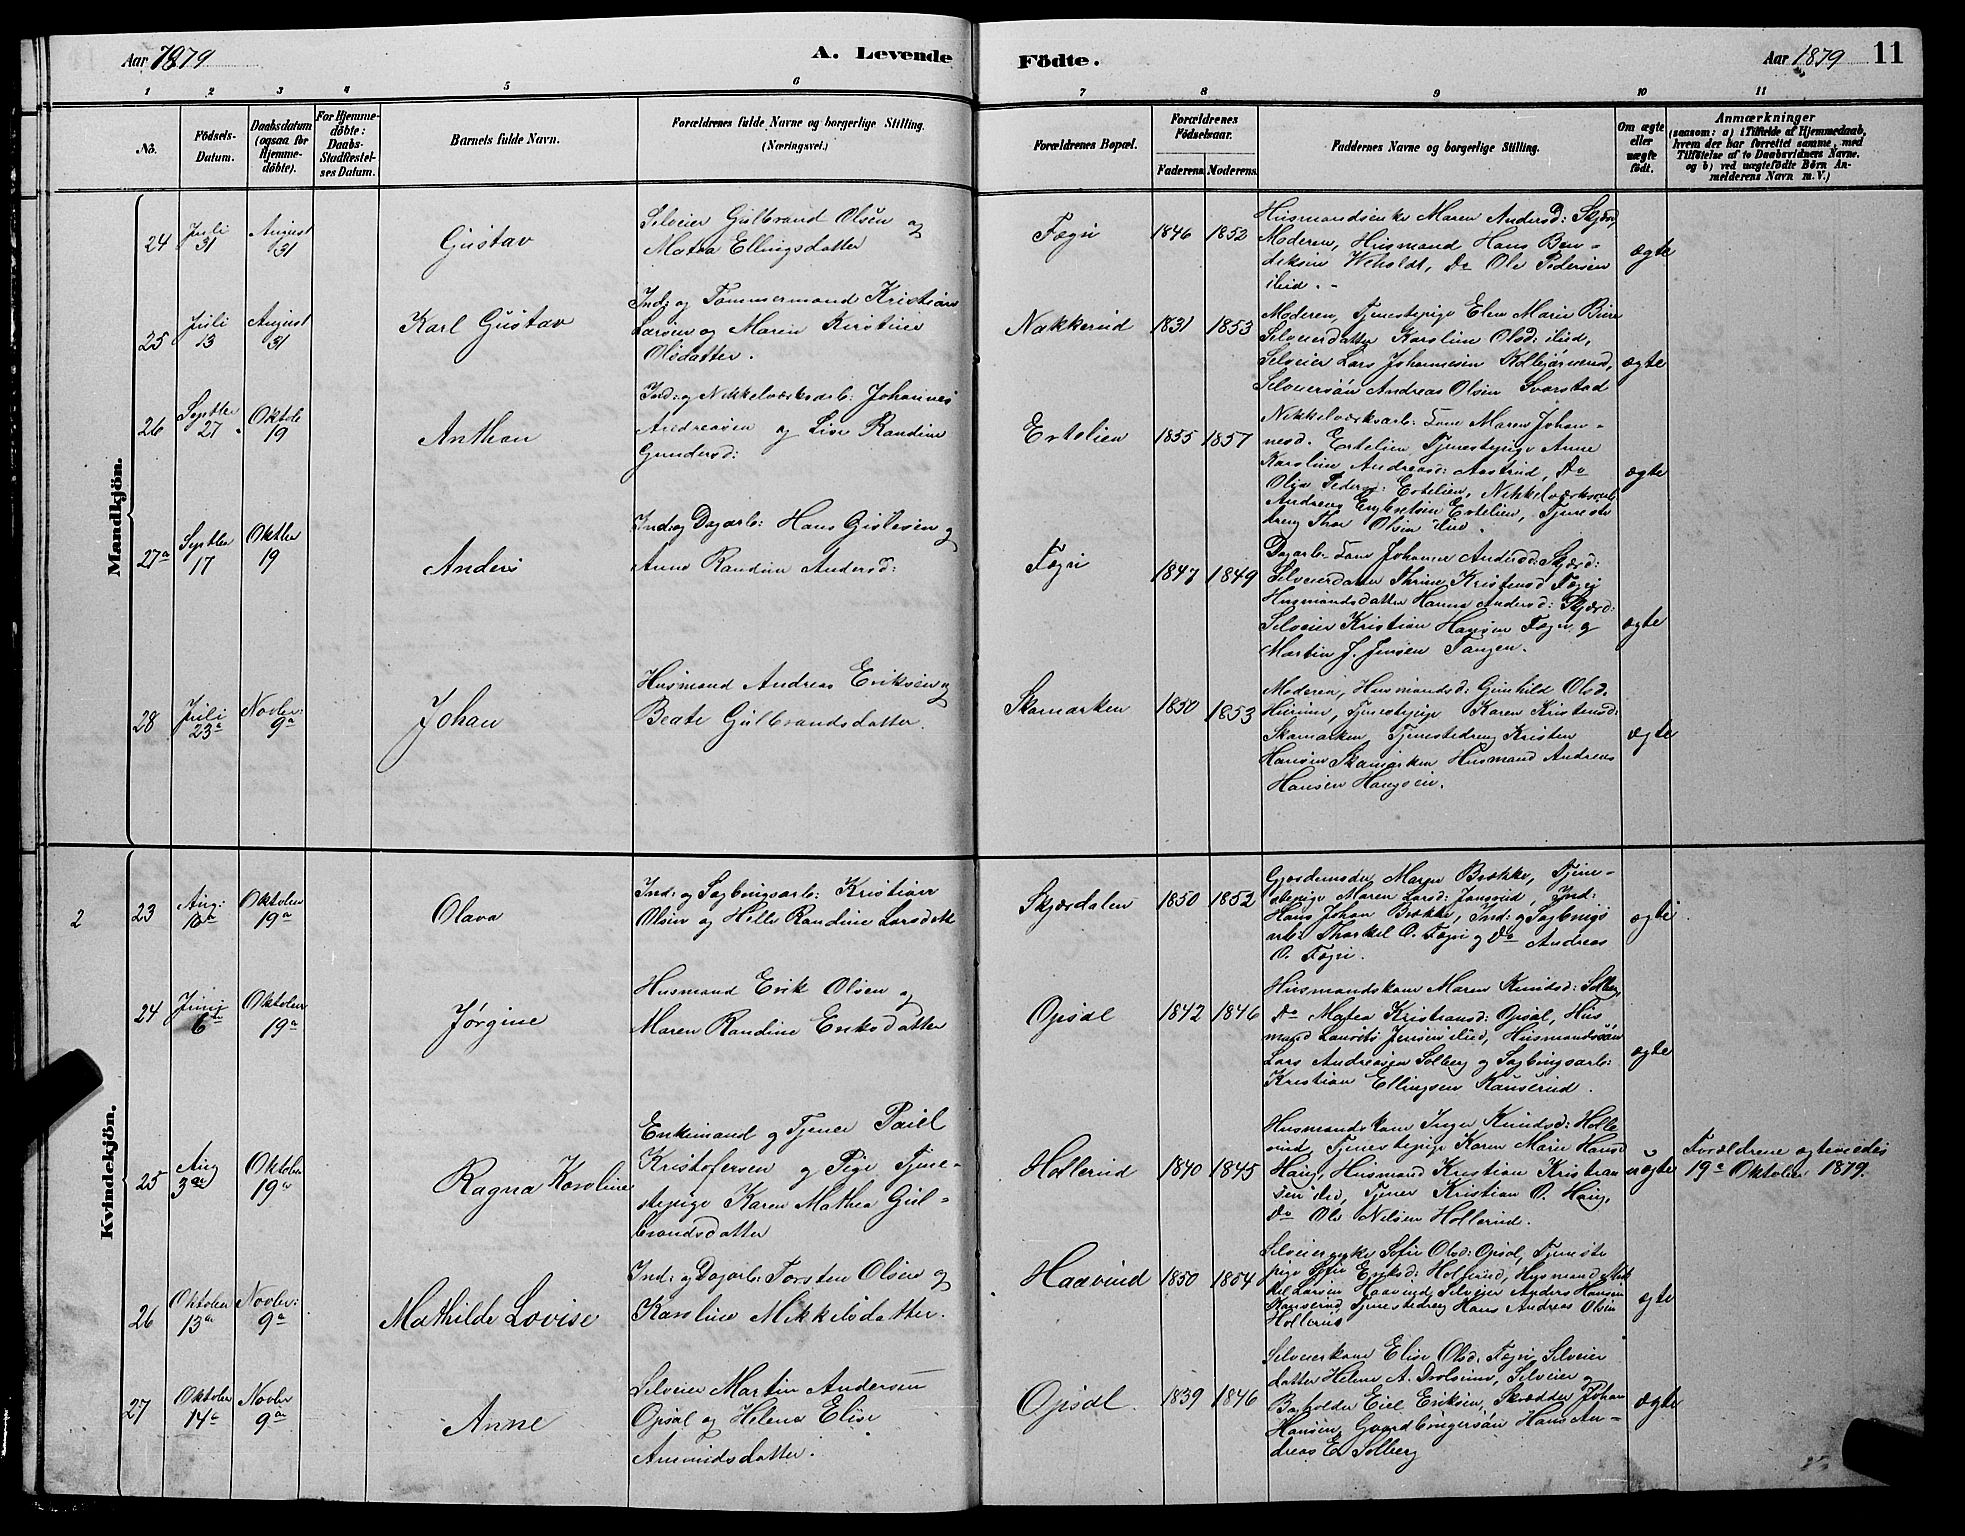 Aar 1879
A. Levende
Födte.
Aar 1879
11
1
2
3
4
5
6
7
8
9
10
11
No.
Födsels-
Datum.
Daabsdatum
(ogsaa for
Hjemme-
döbte).
For Hjemme-
döbte:
Daabs-
Stadfæstel-
ses Datum.
Barnets fulde Navn.
Forældrenes fulde Navne og borgerlige Stilling.
(Næringsvei.)
Forældrenes Bopæl.
Forældrenes
Födselsaar.
Faderens.
Moderens.
Faddernes Navne og borgerlige Stilling.
Om ægte
eller
uægte
født.
Anmærkninger
(saasom: a) i Tilfælde af Hjemmedaab,
hvem der har forrettet samme, med
Tilføielse af to Daabsvidners Navne,
og b) ved uægtefødte Börn An-
melderens Navn m. V.)
Mandkjön.
24
Juli
31
August
31
Gustav
Selveier Gulbrand Olsen og
Matea Ellingsdatter
Fægri
1846
1852
Husmandsenke Maren Andersd: Skjærd,
Moderen, Husmand Hans Ben-
diksen Weholdt, Do Ole Pedersen
ibid. -
ægte
25
Juli
13
August
31
Karl Gustav
Ind: og Tømmermand Kristian
Larsen og Maren Kirstine
Olsdatter.
Nakkerud
1831
1853
Moderen, Tjenestepige Elen Marie Bure
Selveierdatter Karoline Olsd: ibid,
Selveier Lars Johannesen
Selveiersøn Andreas Olsen Svarstad
ægte
26
Septbr
27
Oktobr
19
Anthon
Ind: og Nikkelværksarb: Johannes
Andreasen og Lise Randine
Gundersd:
Ertelien
1855
1857
Nikkelværksarb: Kone Maren Johan-
nesd. Ertelien Tjenestepige Anne
Karoline Andreasd: Aastrud, Do
Olia Pedersd: Ertelien, Nikkelværksarb:
Andreas Engbretsen Ertelien, Tjeneste
dreng Thor Olsen ibid.
ægte
27a
Septbr
17
Oktber
19
Anders
Ind: og Dagarb: Hans Gislesen og
Anne Randine Andersd:
Fægri
1847
1849
Dagarb. Kone Johanne Andersd: Skjærd:
Selveierdatter Thrine Kristensd Fægri
Husmandsdatter Hanna Andersd: Skjærd:
Selveier Kristian Hansen Fægri og
Martin J. Jensen Tangen.
ægte
28
Juli
23a
Novbr:
9a
Johan
Husmand Andreas Eriksen og
Beate Gulbrandsdatter.
Skamarken
1850
1853
Moderen, Husmandsd: Gunhild Olsd.
Tjenestepige Karen Kristensd:
Skamarken, Tjenestedreng Kristen
Hansen Skamarken Husmand Andreas
Hansen Haugseie.
ægte
Kvindekjön.
2
23
Aug:
16a
Oktober
19a
Olava
Ind: og Sagbrugsarb: Kristian
Olsen og Helle Randine Larsdatt
Skjærdalen
1850
1852
Gjordemoder Maren Brække, Tjene-
stepige Maren Larsd: Ind:
Hans Johan Brække, Ind: og Sagbrugs
arb: Thorkel O. Fægri og Do Andreas
O. Fægri.
ægte
24
Junij
6te
Oktober
19a
Jørgine
Husmand Erik Olsen og
Maren Randine Eriksdatter
Opsal
1842
1846
Husmandskone Maren Knudsd: Solberg,
Do Matea Kristiansd: Opsal, Hus
mand Laurits Jensen ibid, Husmandssøn
Lars Andreasen Solberg og Sagbrugsarb:
Kristian Ellingsen Ranserud.
ægte
25
Aug
3a
Oktober
19a
Ragna Karoline
Enkemand og Tjener Paul
Kristofersen og Pige Tjene-
stepige Karen Mathea Gul-
brandsdatter
Hollerud
1840
1845
Husmandskone Inger Knudsd: Holle
rud Tjenestepige Karen Marie Hansd
Haug, Husmand Kristian Kristian
sen ibid, Tjener Kristian O. Haug,
Do Ole Nilsen Hollerud.
uægte
Forældrene ægteviedes
19a Oktober 1879.
26
Oktober
13a
Novbr:
9a
Mathilde Lovise
Ind: og Dagarb: Torsten Olsen og
Karoline Mikkelsdatter.
Haavind
1850
1854
Selveierenke Sofie Olsd: Opsal, Tjeneste
pige Eriksd: Hollerud, Husmand Mik
kel Larsen Haavind, Selveier Anders Hansen
Ranserud, Tjenestedreng Hans Andreas Olsen
Hollerud
ægte
27
Oktober
14a
Novbr
9a
Anne
Selveier Martin Andersen
Opsal og Helene Elise
Amundsdatter.
Opsal.
1839
1846
Selveierkone Elise Olsd: Fægri, Selveier
datter Helene A. Drolsum, Selveier og
Bogholder Eriksen, Skrædder Johan
Hansen, Gaardbrugersøn Hans An-
dreas E. Solberg
ægte